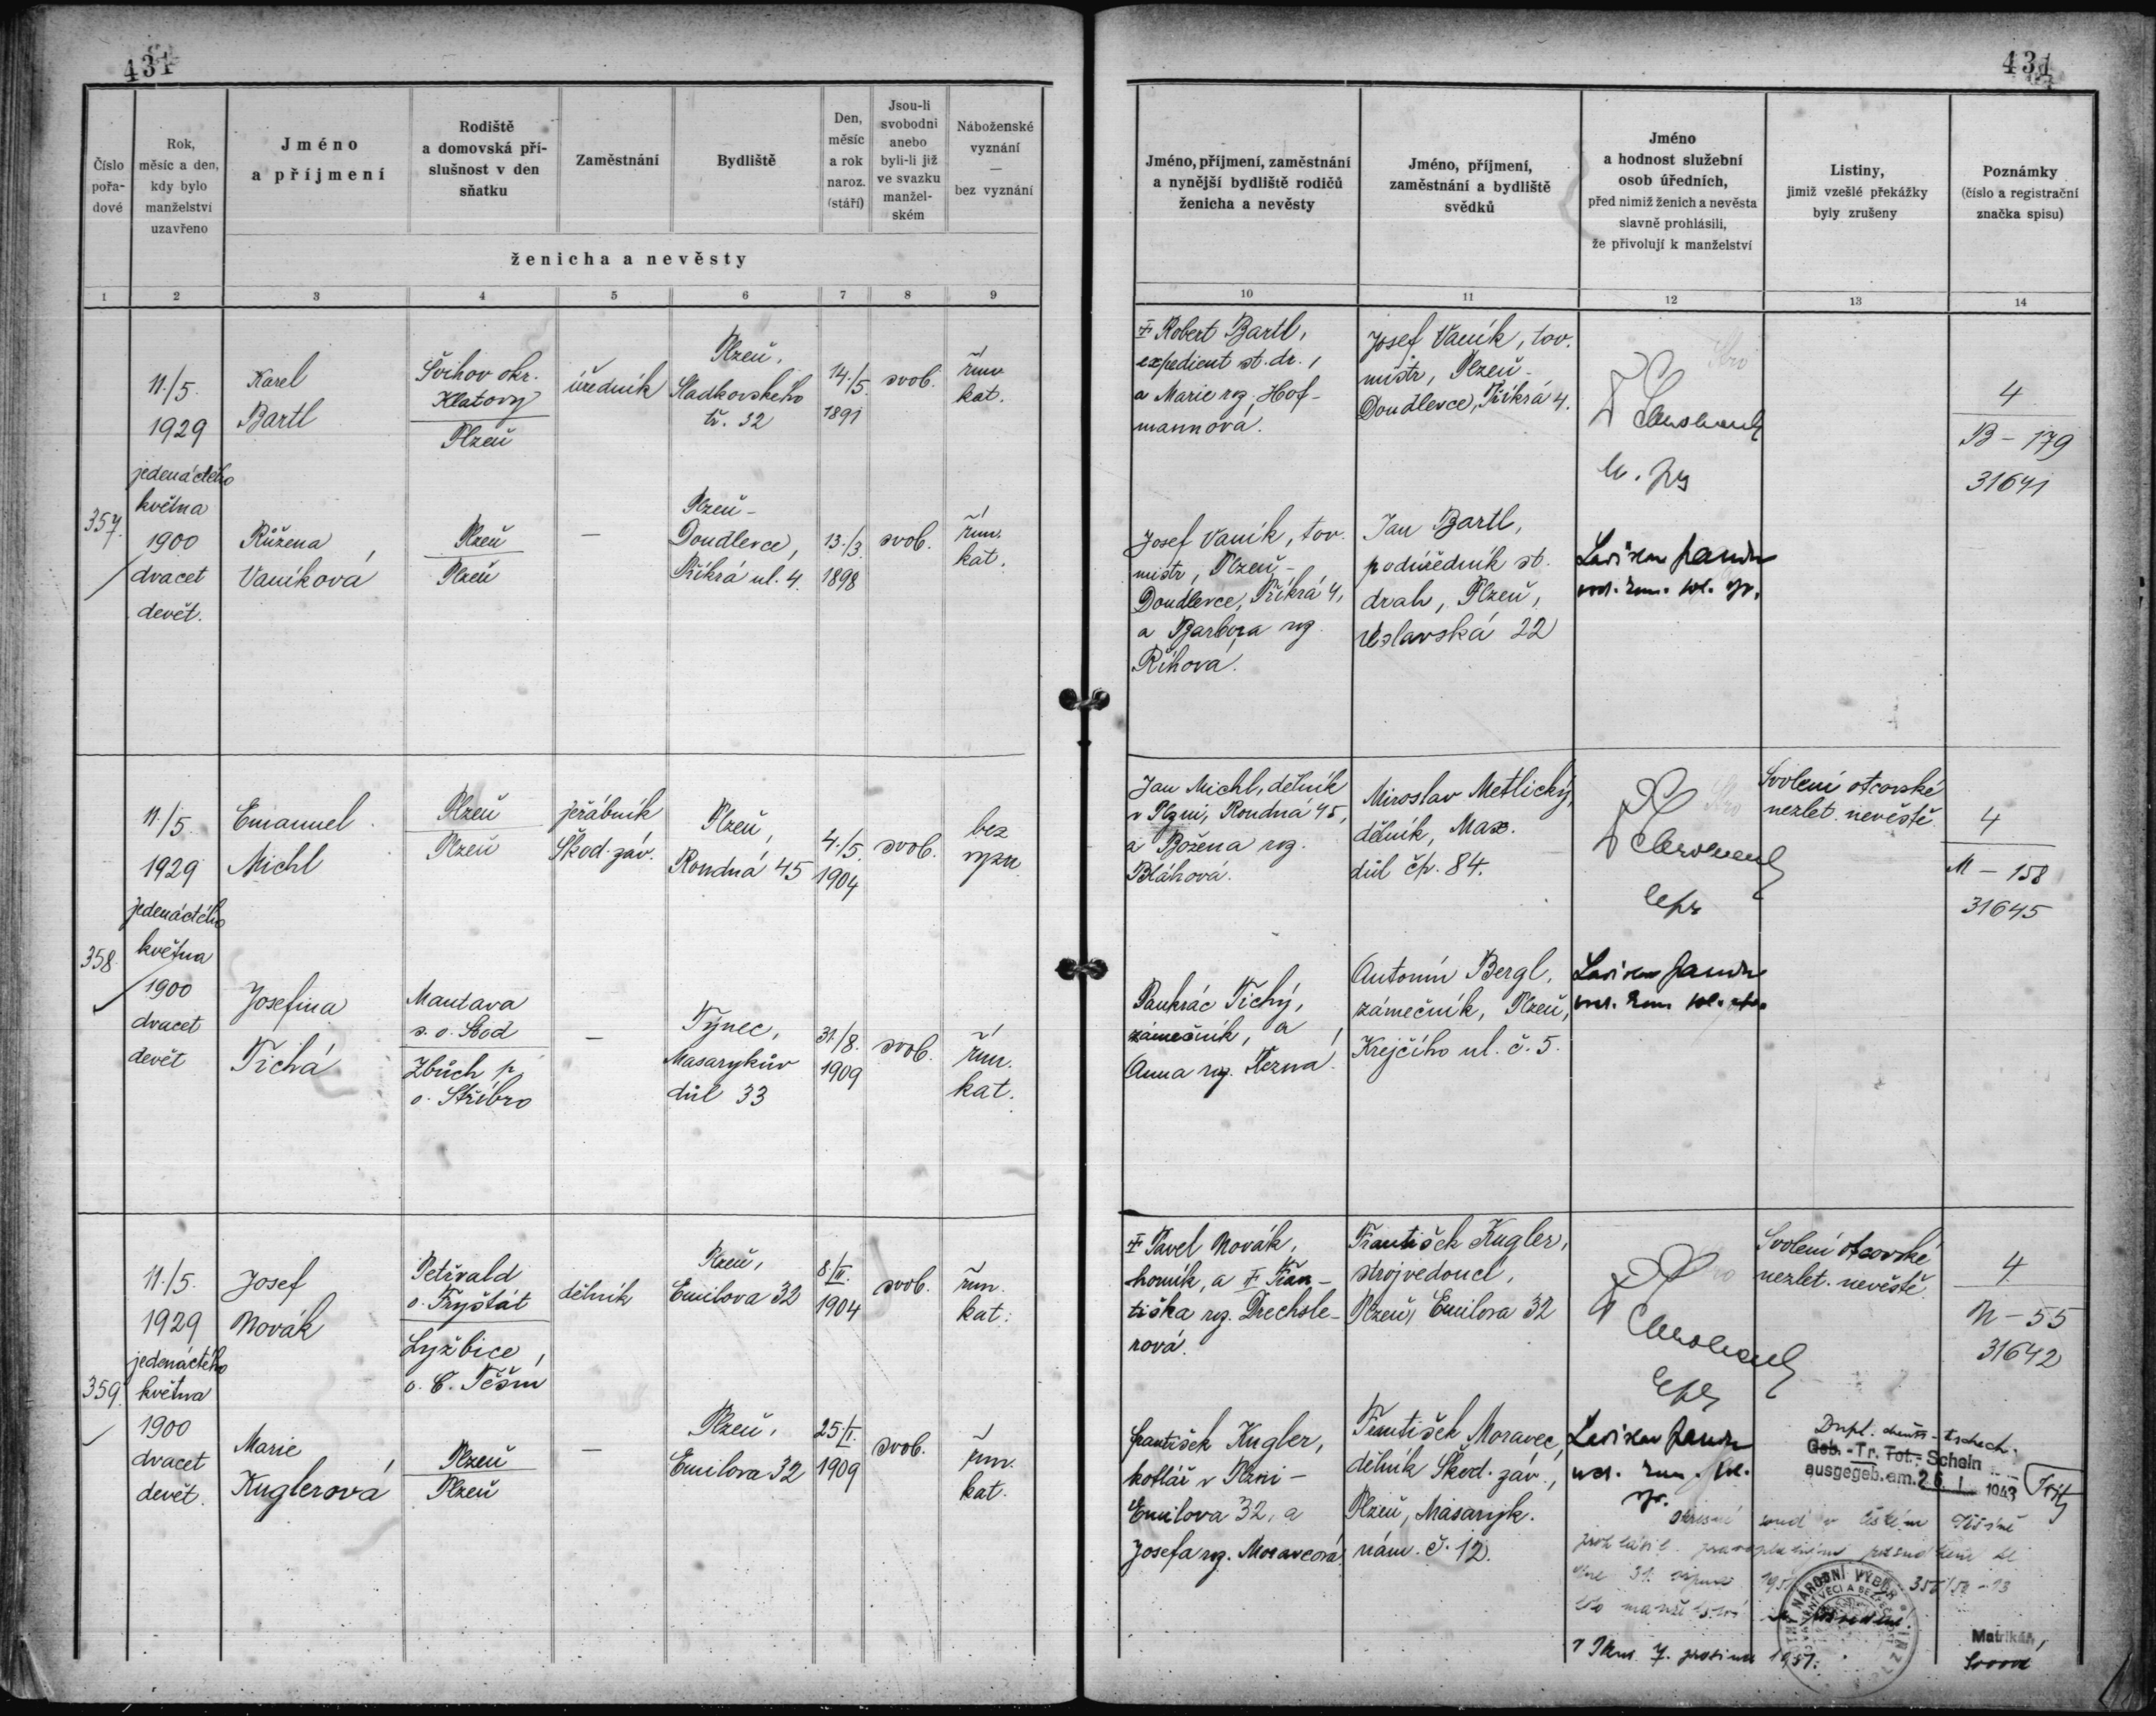 431
Číslo
pořa-
dové
Rok,
měsíc a den,
kdy bylo
manželství
uzavřeno
Jméno
a příjmení
Rodiště
a domovská pří-
slušnost v den
sňatku
Zaměstnání
Bydliště
Den,
měsíc
a rok
naroz.
(stáří)
Jsou-li
svobodni
anebo
byli-li již
ve svazku
manžel-
ském
Náboženské
vyznání
—
bez vyznání
ženicha a nevěsty
1 2 3 4 5 6 7 8 9
357.
11./5.
1929
jedenáctého
května
1900
dvacet
devět.
Karel
Bartl
Švihov okr.
Klatovy
Plzeň
úředník
Plzeň,
Sladkovského
tř. 32
14./5.
1891
svob.
řím.
kat.
Růžena
Vaníková
Plzeň
Plzeň
—
Plzeň-
Doudlevce,
Příkrá ul. 4.
13./3.
1898
svob.
řím.
kat.
358.
11./5.
1929
jedenáctého
května
1900
dvacet
devět
Emanuel
Michl
Plzeň
Plzeň
jeřábník
Škod. záv.
Plzeň,
Roudná 45
4./5.
1904
svob.
bez
vyzn.
Josefina
Tichá
Mantava
s. o. Stod
Zbůch p.
o. Stříbro
—
Týnec,
Masarykův
důl 33
31./8.
1909
svob.
řím.
kat.
359.
11./5.
1929
jedenáctého
května
1900
dvacet
devět.
Josef
Novák
Petřvald
o. Fryštát
Lyžbice,
o. Č. Těšín
dělník
Plzeň,
Emilova 32
8./II.
1904
svob.
řím.
kat.
Marie
Kuglerová
Plzeň
Plzeň
—
Plzeň,
Emilova 32
25./I.
1909
svob.
řím.
kat.
431
Jméno, příjmení, zaměstnání
a nynější bydliště rodičů
ženicha a nevěsty
Jméno, příjmení,
zaměstnání a bydliště
svědků
Jméno
a hodnost služební
osob úředních,
před nimiž ženich a nevěsta
slavně prohlásili,
že přivolují k manželství
Listiny,
jimiž vzešlé překážky
byly zrušeny
Poznámky
(číslo a registrační
značka spisu)
10 11 12 13 14
Robert Bartl,
expedient st. dr.,
a Marie roz. Hof-
mannová.
Josef Vaník, tov.
mistr, Plzeň-
Doudlevce, Příkrá 4.
4
B - 179
31641
Josef Vaník, tov.
mistr, Plzeň-
Doudlevce, Příkrá 4,
a Barbora roz.
Říhová.
Jan Bartl,
podúředník st.
drah, Plzeň,
Úslavská 22
Jan Michl, dělník
v Plzni, Roudná 45,
a Božena roz.
Bláhová.
Miroslav Metlický,
dělník, Max.
důl čp. 84.
Svolení otcovské
nezlet. nevěstě.
4
M - 158
31645
Pankrác Tichý,
zámečník, a
Anna roz.
Antonín Bergl,
zámečník, Plzeň,
Krejčího ul. č. 5.
Pavel Novák,
horník, a Fran-
tiška roz. Drechsle-
rová.
František Kugler,
strojvedoucí,
Plzeň, Emilova 32
Svolení otcovské
nezlet. nevěstě.
4
N - 55
31642
František Kugler,
kotlář v Plzni -
Emilova 32, a
Josefa roz. Moravcová.
František Moravec,
dělník Škod. záv.,
Plzeň, Masaryk.
nám. č. 12.
Dupl. deutsch-tschech.
Geb.-Tr.-Tot.-Schein
ausgegeb. am. 26. 1. 1943
soud v
31. 1951
manželství
7. 1951.
NÁRODNÍ VÝBOR
Matrikář,